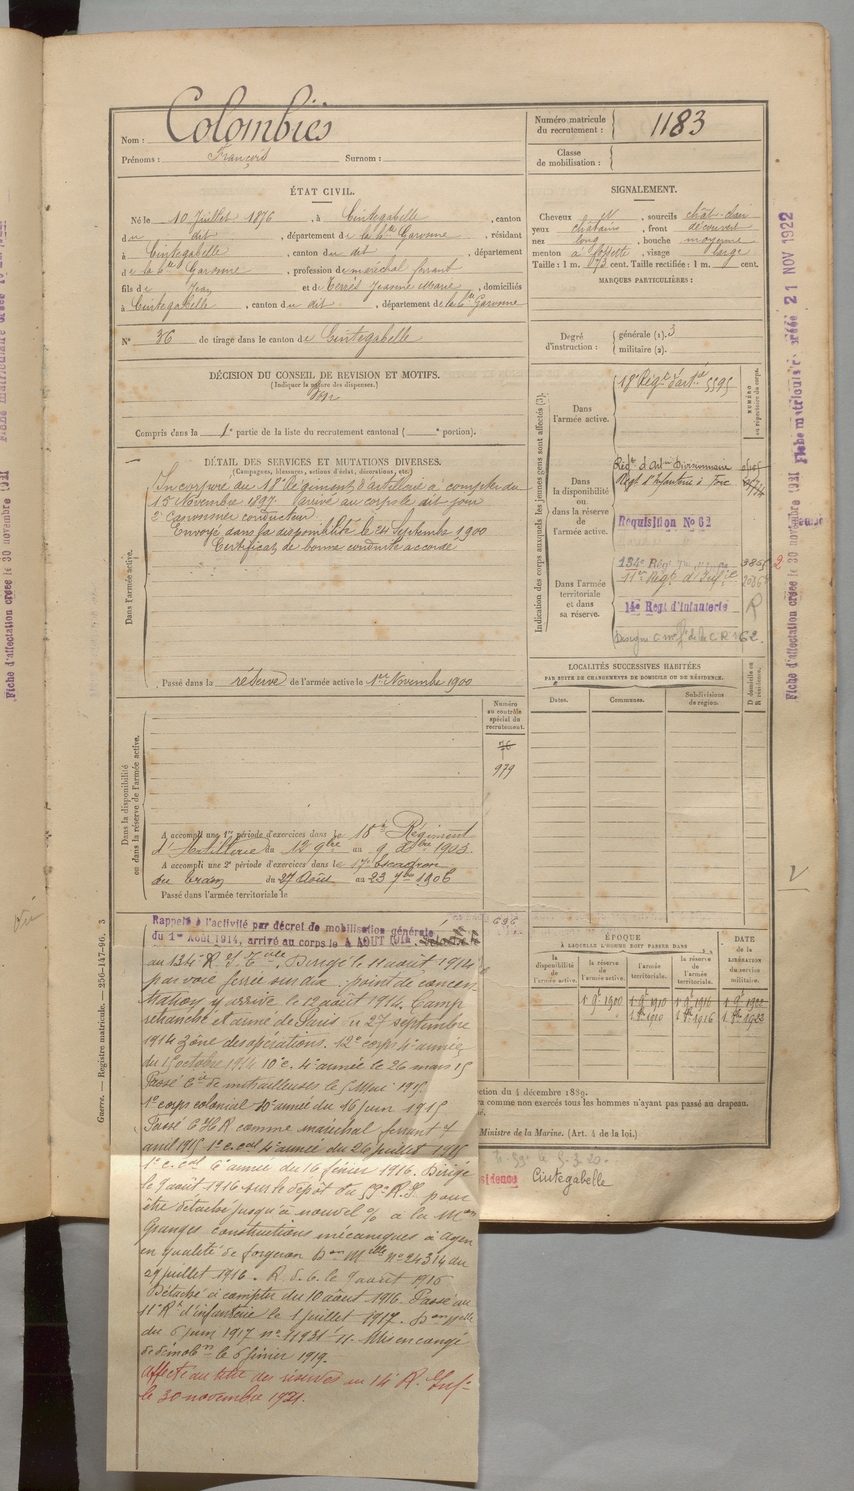 Nom : Colombiès
Prénoms : François Surnom :
ÉTAT CIVIL.
Né le 10 Juillet 1876, à Cintegabelle, canton
du dit, département de la Hte Garonne, résidant
à Cintegabelle, canton du dit, département
de la Hte Garonne, profession de maréchal ferrant
fils de Jean et de Terrés Jeanne Marie, domiciliés
à Cintegabelle, canton du dit, département de la Hte Garonne
N° 36 de tirage dans le canton de Cintegabelle
DÉCISION DU CONSEIL DE REVISION ET MOTIFS.
(Indiquer la nature des dispenses.)
Bon
Compris dans la 1e partie de la liste du recrutement cantonal ( e portion).
DÉTAIL DES SERVICES ET MUTATIONS DIVERSES.
(Campagnes, blessures, actions d'éclat, décorations, etc.)
Dans l'armée active.
Incorporé au 18e Régiment d'artillerie à compter du
15 Novembre 1897. Arrivé au corps le dit jour
2e Canonnier conducteur
Envoyé dans la disponibilité le 24 Septembre 1900
Certificat de bonne conduite accordé
Passé dans la réserve de l'armée active le 1er Novembre 1900
Numéro au contrôle spécial du recrutement.
76
979
Dans la disponibilité
ou dans la réserve de l'armée active.
A accompli une 1re période d'exercices dans le 18e Régiment
d'Artillerie du 12 9bre au 9 Xbre 1903.
A accompli une 2e période d'exercices dans le 17e Escadron
du train du 27 Août au 23 7bre 1906
Passé dans l'armée territoriale le
696
Rappelé à l'activité par décret de mobilisation générale
du 1er Août 1914, arrivé au corps le 4 AOUT 1914.
au 134e R. I. Tle. Dirigé le 11 août 1914
par voie ferrée sur dix point de concen
tration y arrive le 12 août 1914. Camp
retranché et armé de Paris du 27 septembre
1914 zone des opérations. 12e corps 4e année
du 15 octobre 1914 10e c. 4e année le 26 mars 15
Passé Cie de mitrailleuses le 5 Mai 1915
1e corps colonial 10e année du 16 juin 1915
Passé C H R comme maréchal ferrant 7
avril 1915 1e c. cal 4e année du 26 juillet 1915
1e c. cal 6e année du 16 février 1916. Dirigé
le 9 août 1916 sur le dépôt du 59e R. I. pour
être détaché jusqu'à nouvel % à la Mon
Granges constructions mécaniques à Agen
en qualité de forgeron Don Melle n° 24314 du
29 juillet 1916. R. d. C. le 9 août 1916
Détaché à compter du 10 août 1916. Passé au
11e Rt d'infanterie le 1 juillet 1917. Don Melle
du 6 juin 1917 n° 11931 1/11. Mis en congé
de démobon le 6 février 1919.
Affecté au titre des réserves au 14e R. Infie
le 30 novembre 1921.
Numéro matricule
du recrutement : 1183
Classe
de mobilisation :
SIGNALEMENT.
Cheveux, sourcils chât-clair
yeux chatains, front découvert
nez long, bouche moyenne
menton à fossette, visage large
Taille : 1 m. 673 cent. Taille rectifiée : 1 m. cent.
MARQUES PARTICULIÈRES :
Degré
d'instruction : générale (1). 3
militaire (2).
Indication des corps auxquels les jeunes gens sont affectés (3).
NUMÉRO au répertoire du corps.
Dans
l'armée active.
18e Régt d'artie 5595
Dans
la disponibilité
ou
dans la réserve
de
l'armée active.
Régt d'Artie Divisionnaire
Régt d'Infanterie à Foix
Réquisition No 62
Dans l'armée
territoriale
et dans
sa réserve.
134e Régt
11e Régt d'Infie
R
14e Régt d'Infanterie
LOCALITÉS SUCCESSIVES HABITÉES
PAR SUITE DE CHANGEMENTS DE DOMICILE OU DE RÉSIDENCE.
Dates. Communes. Subdivisions de région. D domicile ou R résidence.
ÉPOQUE
À LAQUELLE L'HOMME DOIT PASSER DANS
la disponibilité de l'armée active. la réserve de l'armée active. l'armée territoriale. la réserve de l'armée territoriale.
DATE de la LIBÉRATION du service militaire.
1 9e 1900 1 9e 1910 1 9e 1916 1 9e 1922
1 8bre 1910 1 8bre 1916 1 8bre 1923
ction du 4 décembre 1889.
ra comme non exercés tous les hommes n'ayant pas passé au drapeau.
Ministre de la Marine. (Art. 4 de la loi.)
sidence Cintegabelle
Guerre. — Registre matricule. — 256-147-96.
Fiche d'affectation créée le 30 novembre 1921
Fiche matricule créée 21 NOV 1922
Fiche d'affectation créée le 30 novembre 1921